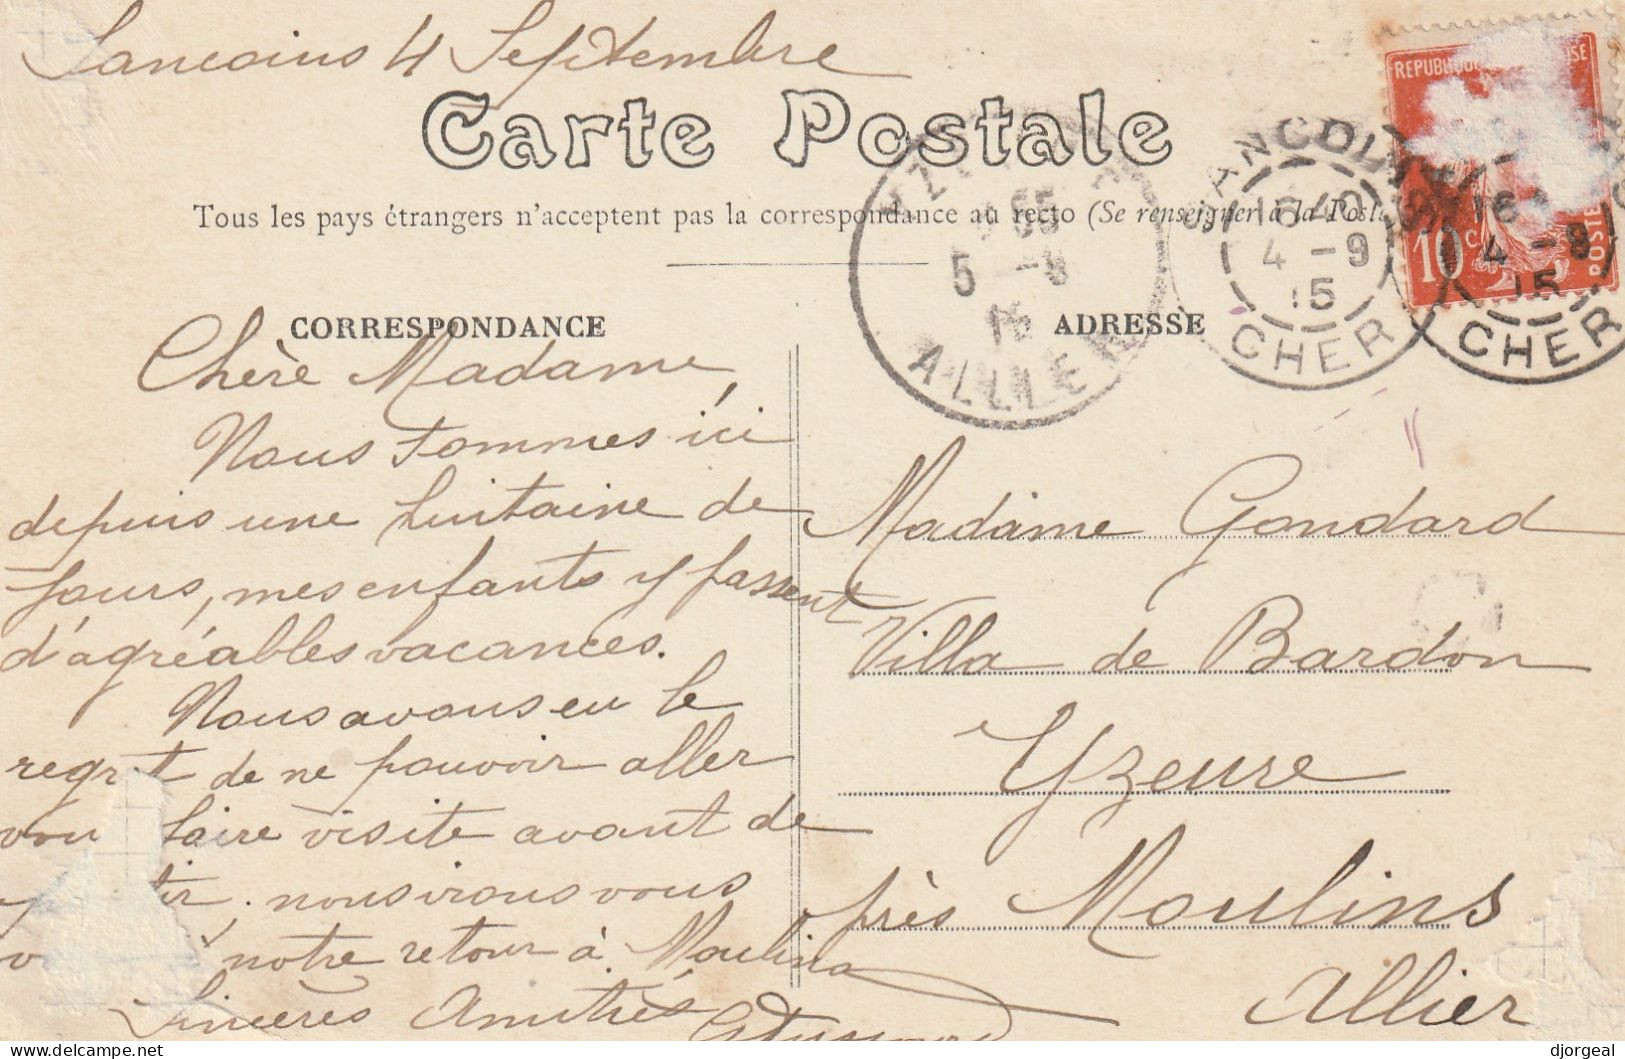 Sancoins 4 Septembre
Carte Postale
Tous les pays étrangers n'acceptent pas la correspondance au recto (Se renseigner à la Poste
CORRESPONDANCE
Chère Madame,
Nous sommes ici
depuis une huitaine de
jours, mes enfants y passent
d'agréables vacances.
Nous avons eu le
regret de ne pouvoir aller
vous faire visite avant de
tir, nous irons vous
notre retour à Moulins
Sincères Amitiés
ADRESSE
Madame Gondard
Villa de Bardon
Yzeure
près Moulins
Allier
REPUBLIQUE
10 c
POSTE
SANCOINS
16 40
4 - 9
15
CHER
16
4 - 9
15
CHER
5 - 9
15
ALLIER
Delcampe.net
djorgeal